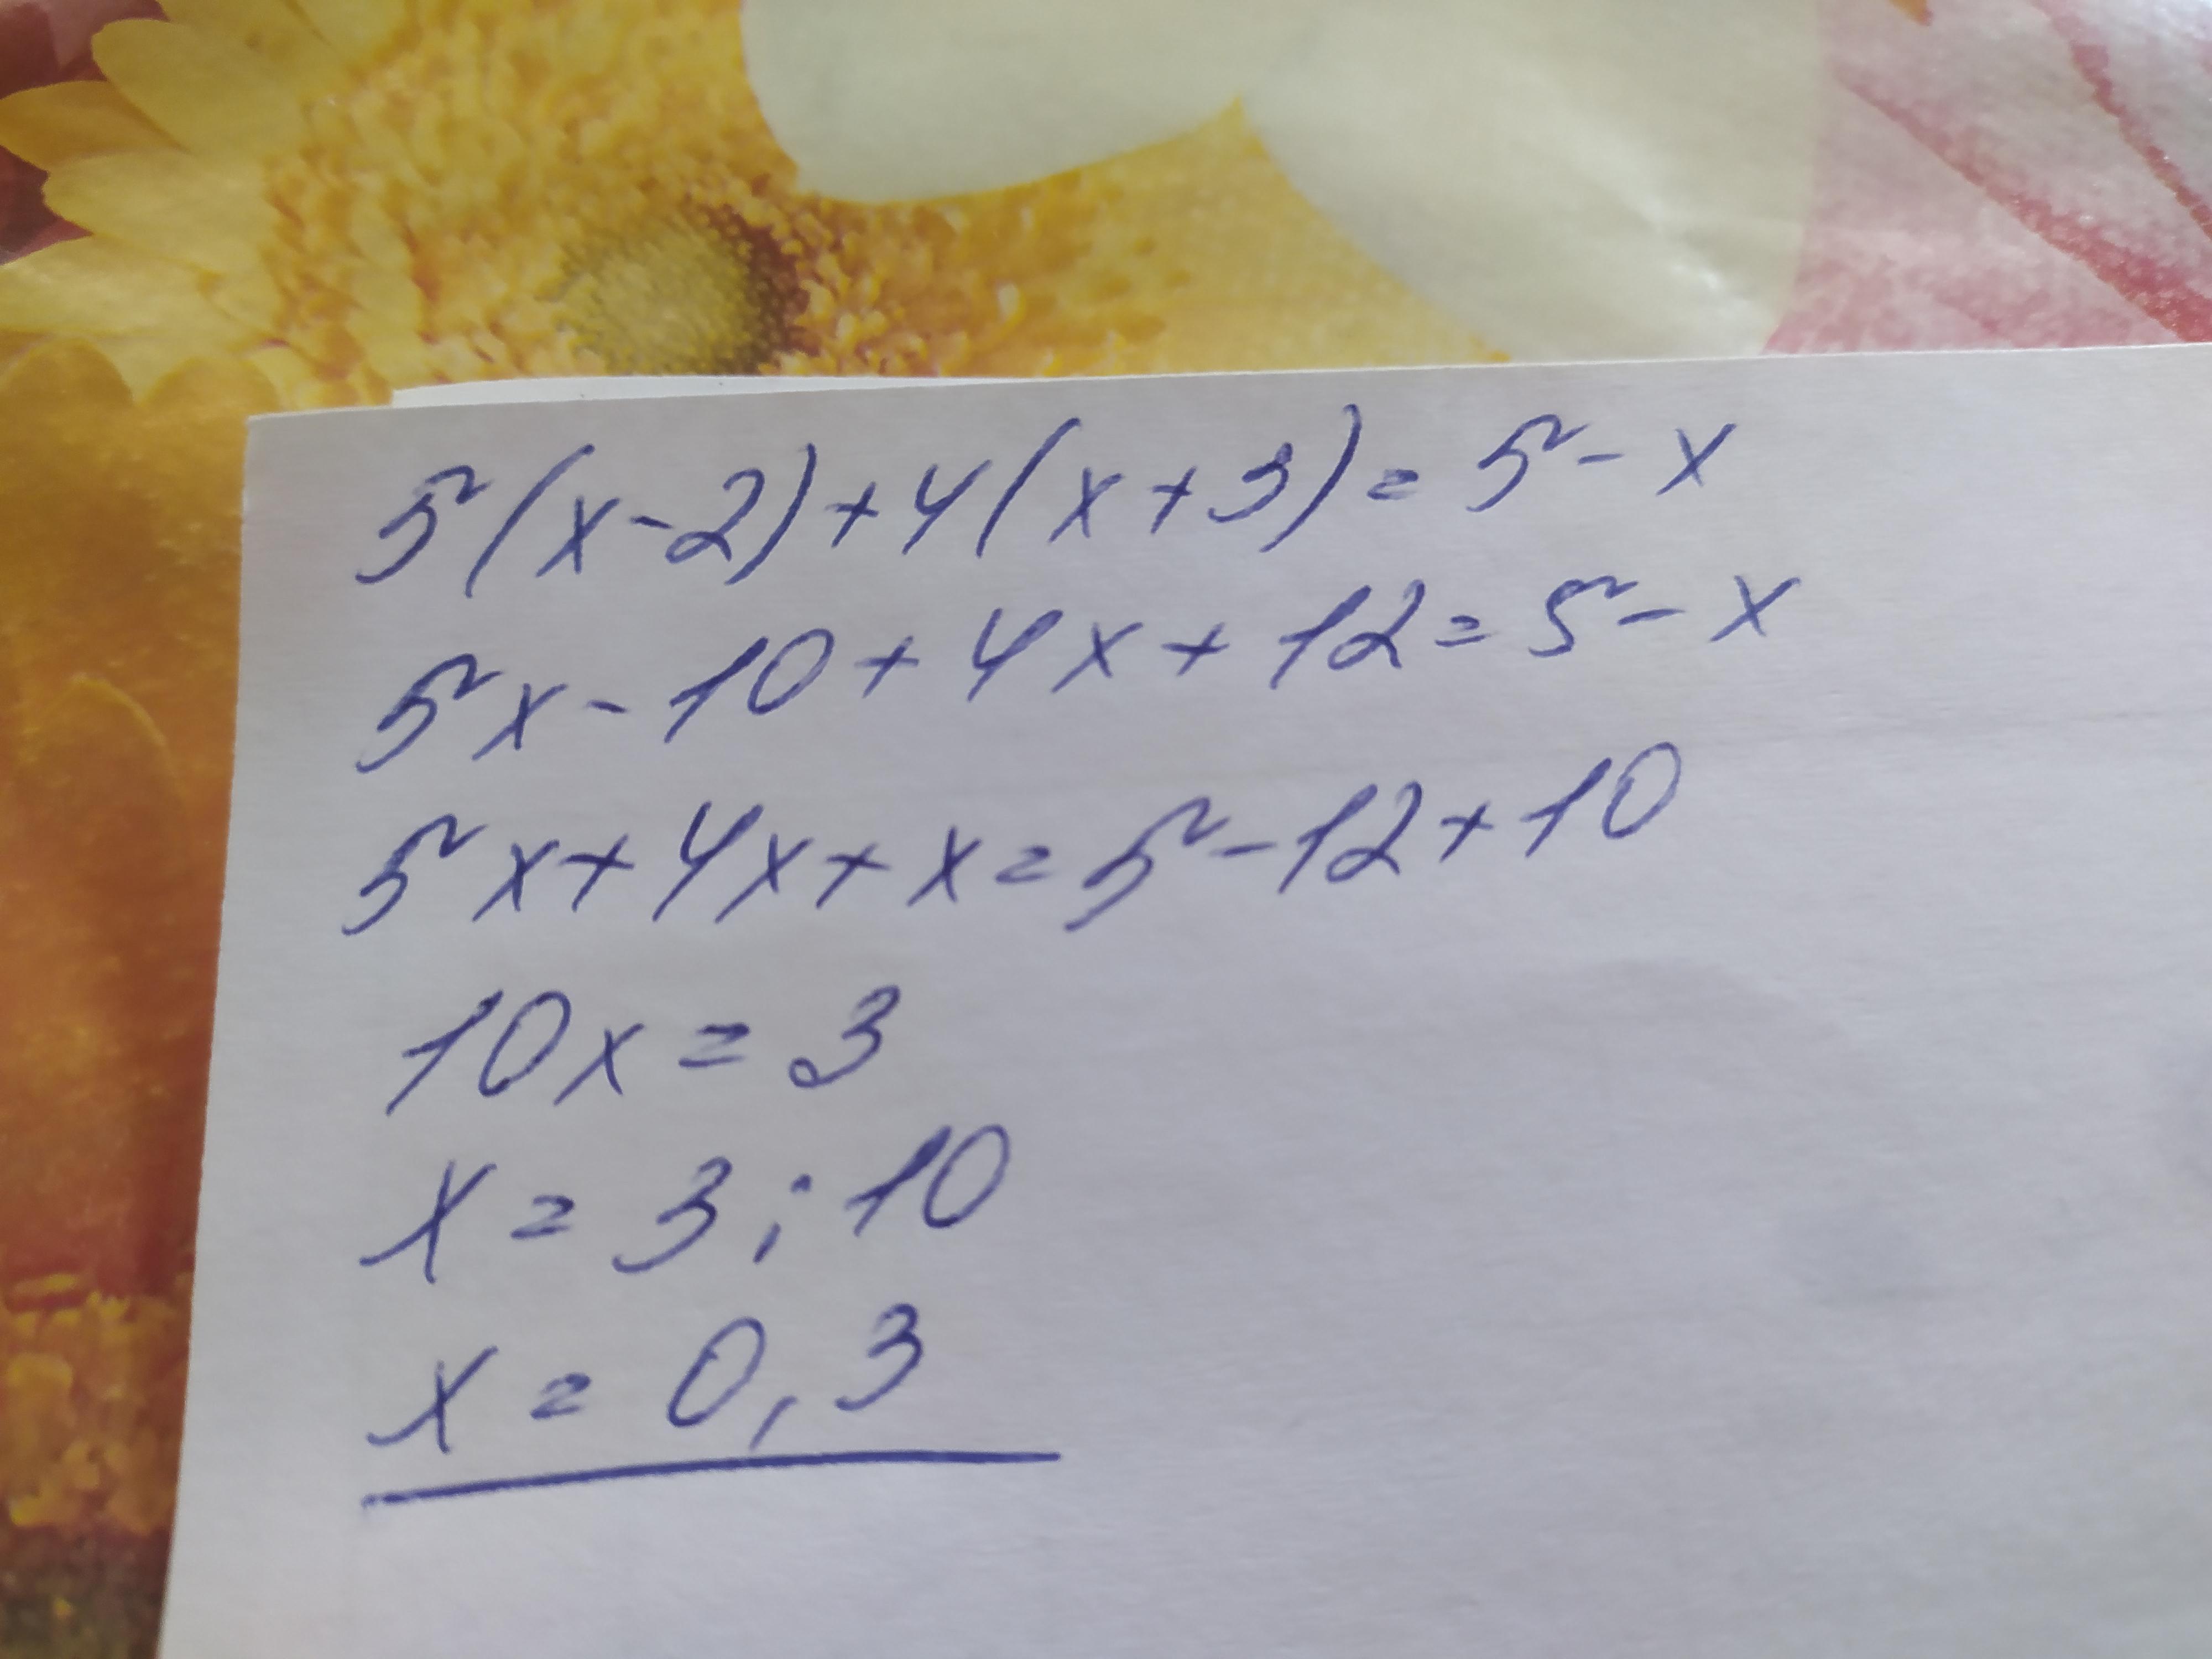 5(x-2)+4(x+3)=5-x
5x-10+4x+12=5-x
5x+4x+x=5-12+10
10x=3
x=3:10
x=0,3